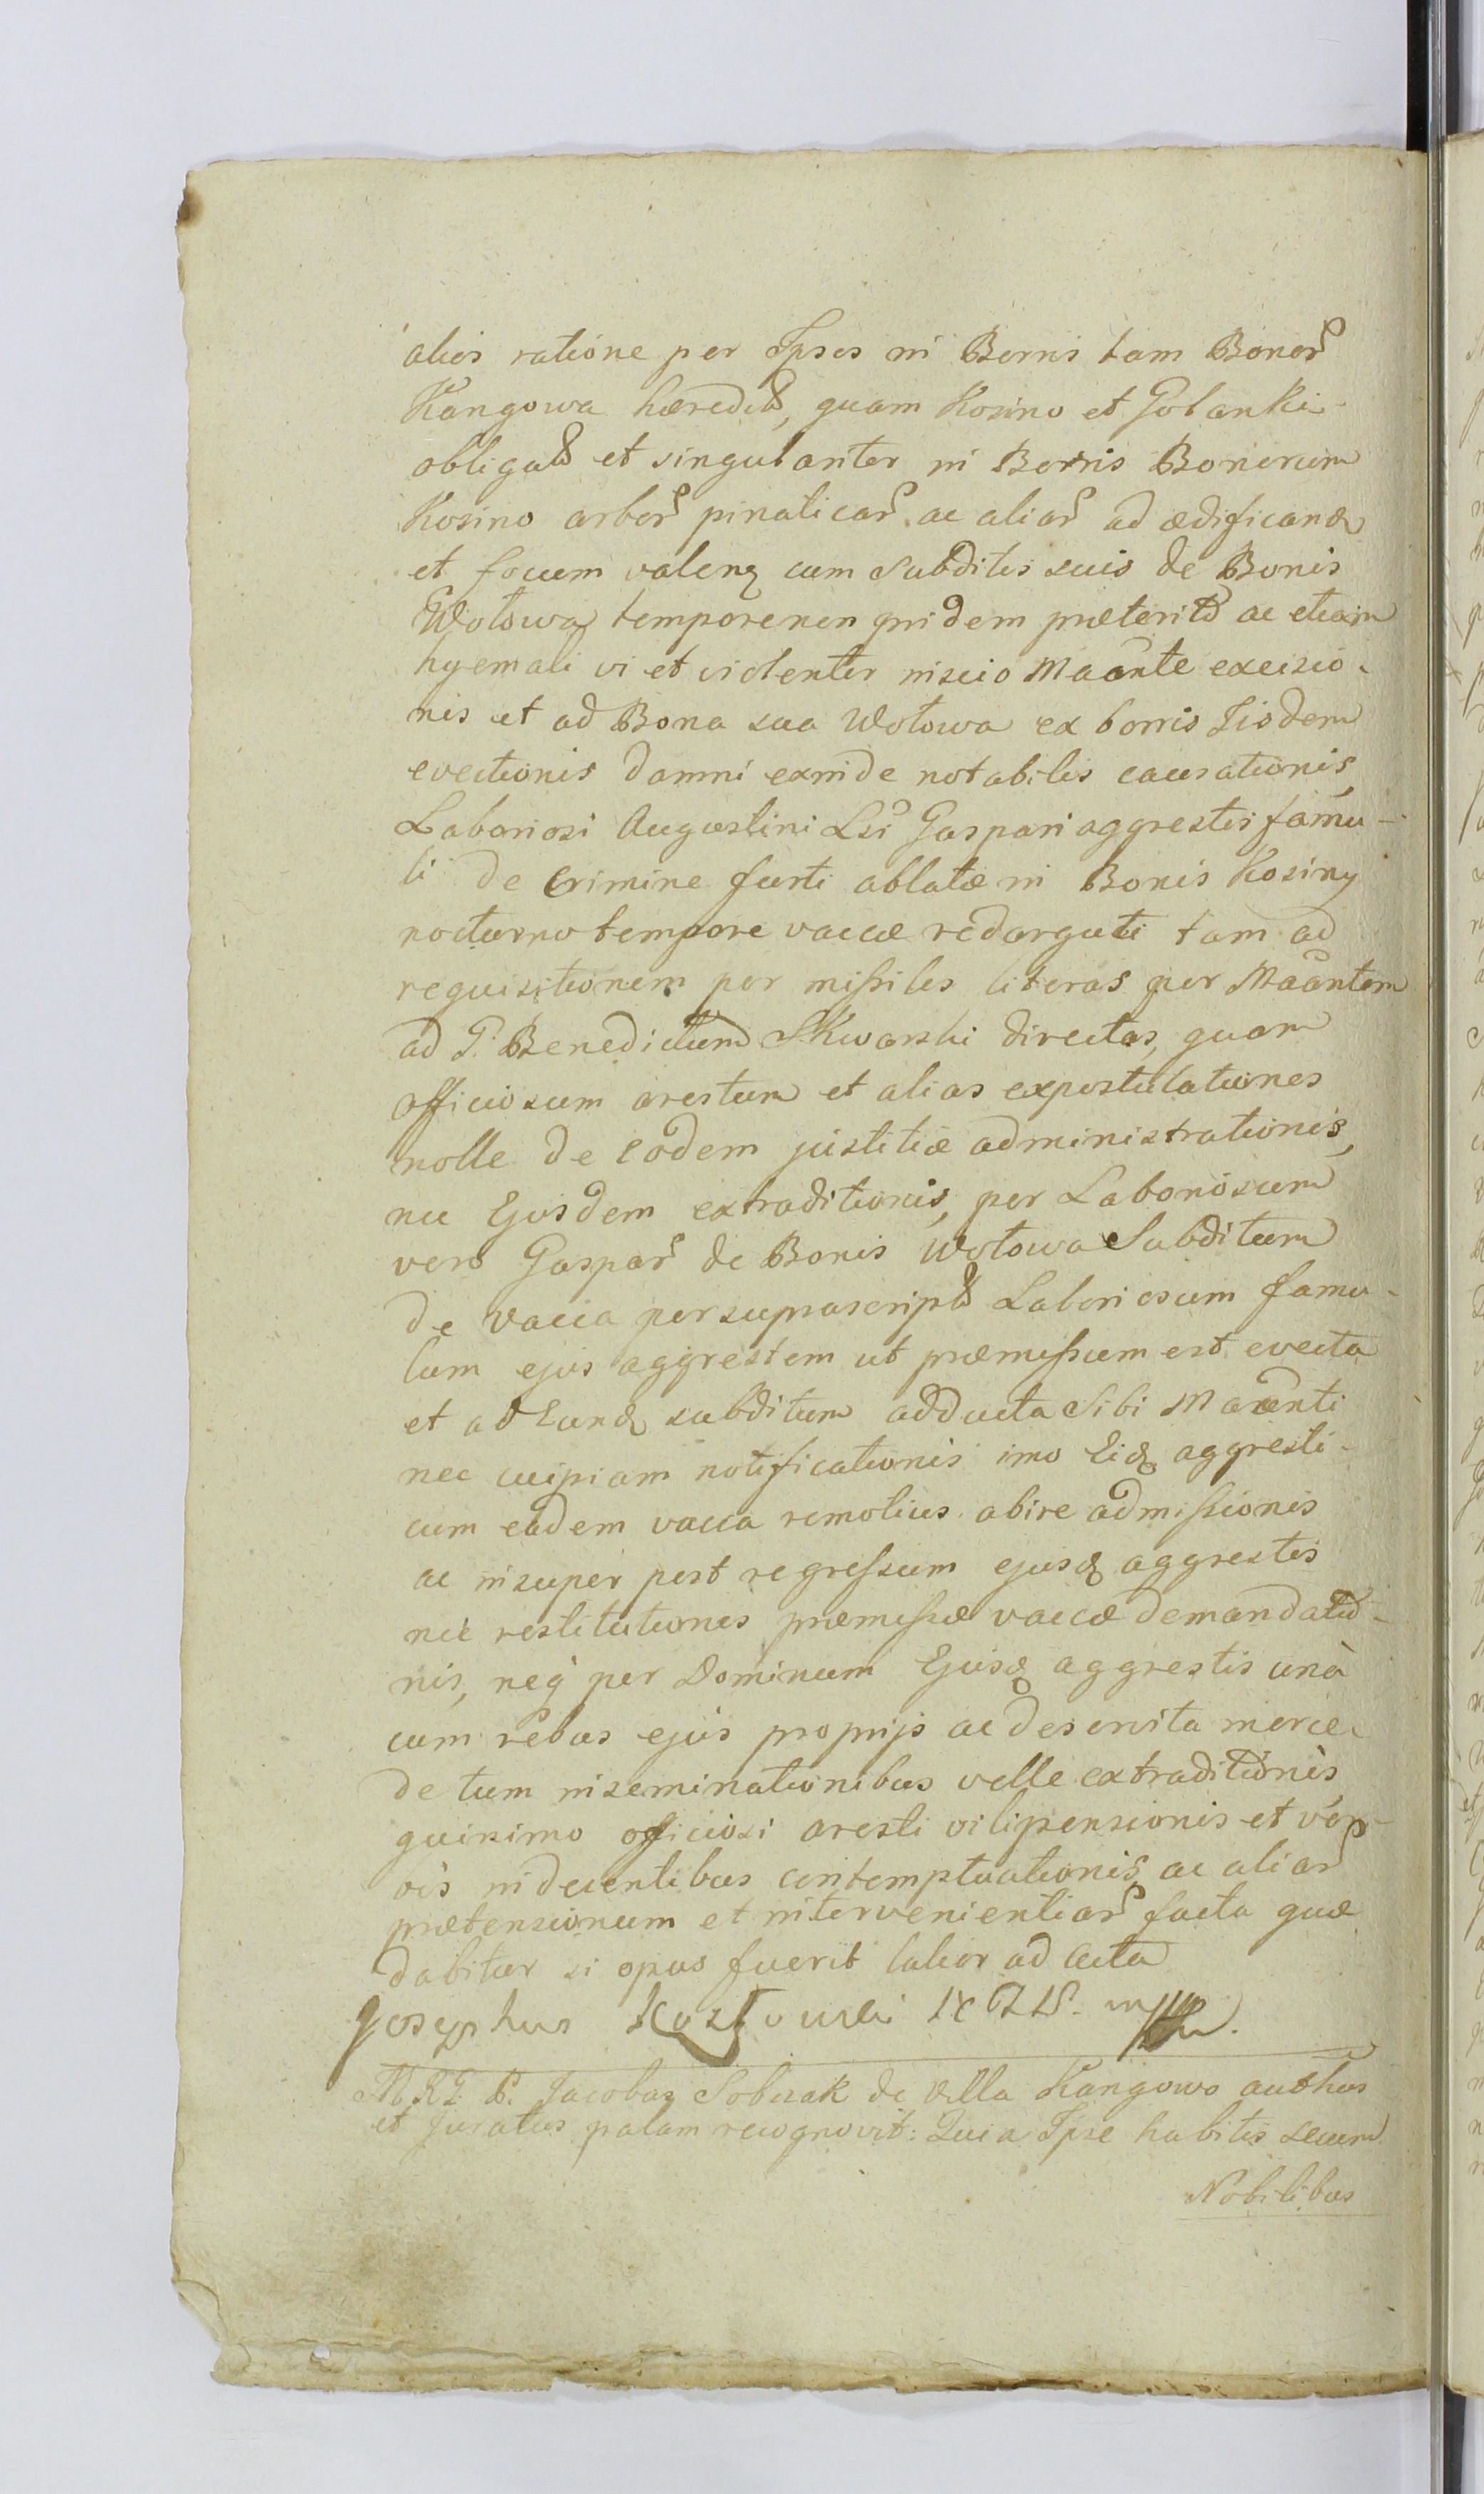 alios ratione per Ipsos in Borris tam Bonor
Kangowa hæredit, quam Kosino et Golanki
obligat et singulariter in Borris Bonorum
Kosino arbor pinaticar ac aliar ad ædificand
et focum valenq cum Subditis suis de Bonis
Wotowa temporenen pridem præterito ac etiam
hyemali vi et violenter inscio Maante excisio-
nis et ad Bona sua Wotowa ex borris Iisdem
evectionis damni exinde notabilis causationis,
Laboriosi Augustini Lsi Gaspari aggrestis famu-
li de Crimine furti ablatæ in Bonis Kosiny
nocturno tempore vaccæ redarguti tam ad
requisitionem per missiles literas per Maantem
ad G. Benedictum Skwarski directas, quam
officiosum arestum et alias expostulationes
nolle de eodem justitiæ administrationis,
nec Ejusdem extraditionis, per Laboriosum
vero Gaspar de Bonis Wotowa Subditum
de vacca per suprascript Laboriosum famu-
lum ejus aggrestem ut præmissum est evecta
et ad Eund subditum adducta Sibi Maanti
nec cuipiam notificationis imo Eid aggresti
cum eadem vacca remotius abire admissionis
ac insuper post regressum ejusd aggrestis
nec restitutionis præmissæ vaccæ demandatio-
nis, neq per Dominum Ejusd aggrestis unà
cum rebus ejus proprijs ac deservita merce-
de tum inseminationibus velle extraditionis
quinimo officiosi aresti vilipensionis et ver-
bis indecentibus contemptuationis, ac aliar
prætensionum et intervenientiar facta quæ
dabitur si opus fuerit latior ad Acta
Josephus Kostowski
M R G. P. Jacobus Sobczak de villa Kangowo authus
et Juratus palam recognovit: Quia Ipse habitis secum
Nobilibus